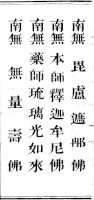 南無毘盧遮那佛
南無本師釋迦牟尼佛
南無藥師琉璃光如來
南無無量壽佛